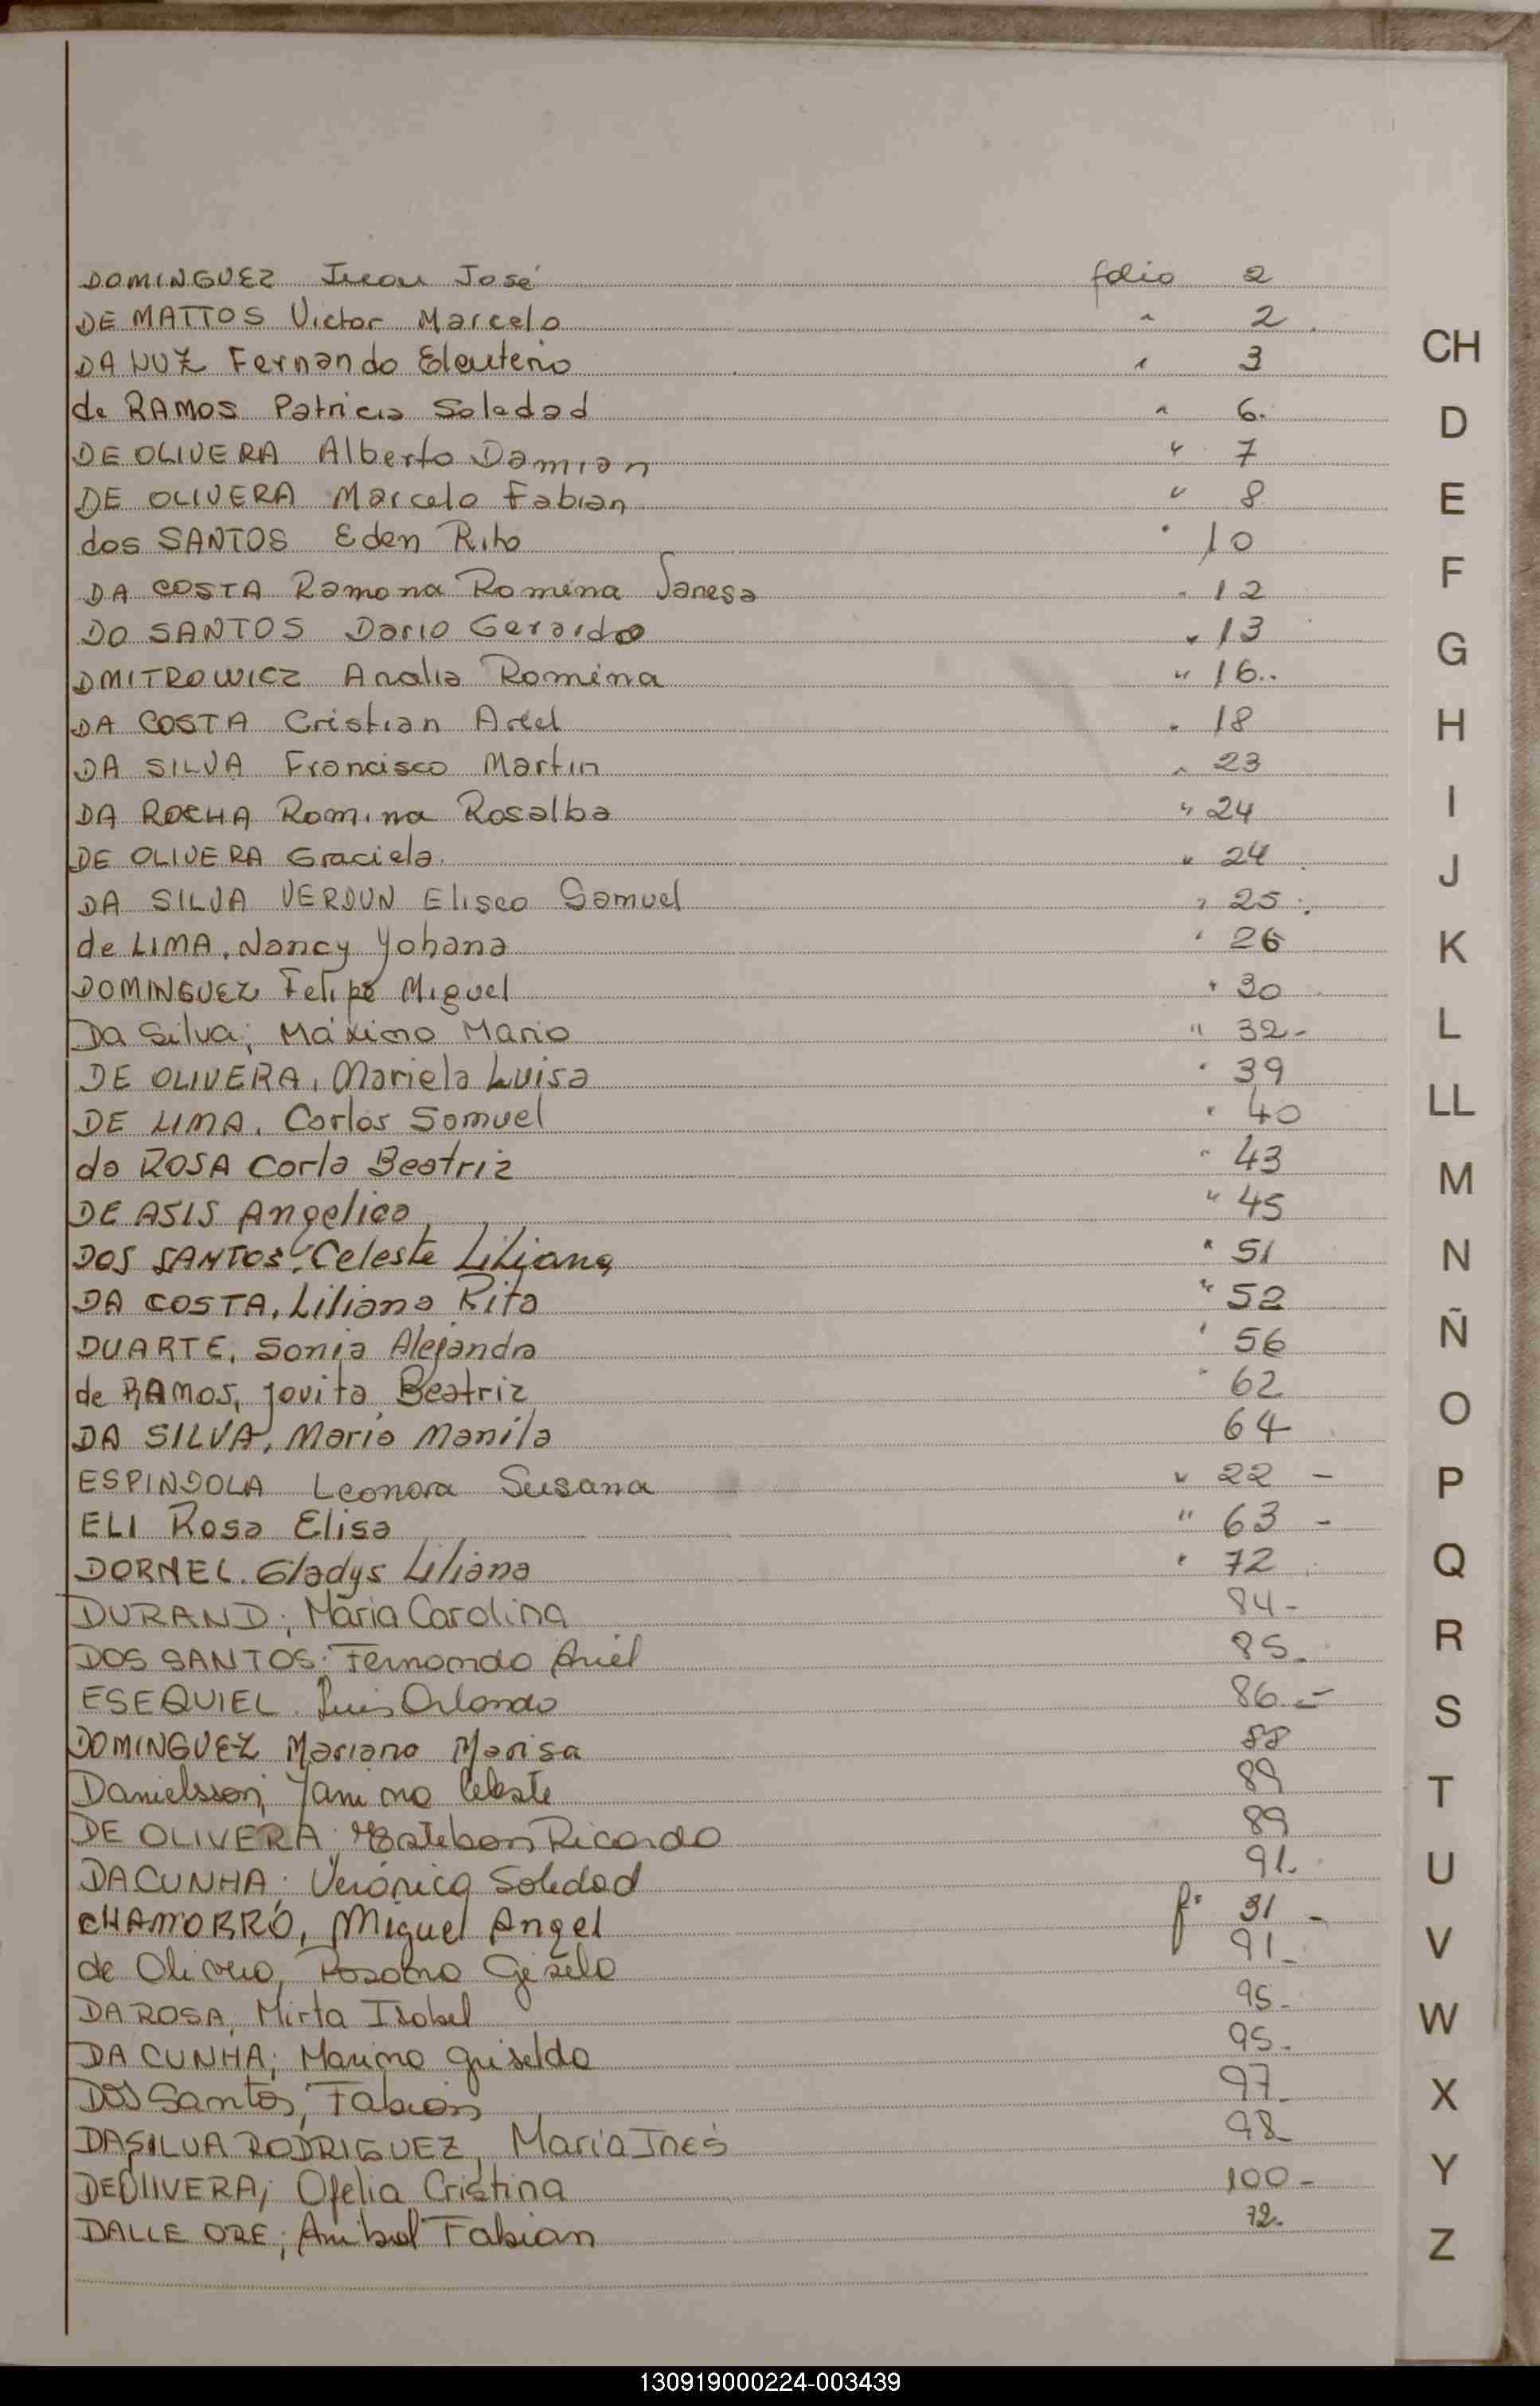 DOMINGUEZ Juan José folio 2
DE MATTOS Victor Marcelo " 2
DA LUZ Fernando Eleuterio " 3
de RAMOS Patricia Soledad " 6.
DE OLIVERA Alberto Damian " 7
DE OLIVERA Marcelo Fabian " 8
dos SANTOS Eden Rito " 10
DA COSTA Ramona Romina Vanesa " 12
DO SANTOS Dario Gerardo " 13
DMITROWICZ Analia Romina " 16..
DA COSTA Cristian Ariel " 18
DA SILVA Francisco Martin " 23
DA ROCHA Romina Rosalba " 24
DE OLIVERA Graciela. " 24
DA SILVA VERDUN Eliseo Samuel " 25
de LIMA, Nancy Yohana " 26
DOMINGUEZ Felipe Miguel " 30
Da Silva; Máximo Mario " 32-
DE OLIVERA, Mariela Luisa " 39
DE LIMA, Carlos Samuel " 40
da ROSA Carla Beatriz " 43
DE ASIS Angelica " 45
DOS SANTOS, Celeste Liliana " 51
DA COSTA, Liliana Rita " 52
DUARTE, Sonia Alejandra " 56
de RAMOS, Jovita Beatriz " 62
DA SILVA, Maria Manila 64
ESPINDOLA Leonora Susana " 22 -
ELI Rosa Elisa " 63 -
DORNEL. Gladys Liliana " 72
DURAND; Maria Carolina 84-
DOS SANTOS; Fernando Ariel 85.
ESEQUIEL Luis Orlando 86.-
DOMINGUEZ Mariana Marisa 88
Danielsson; Yanina Celeste 89
DE OLIVERA; Esteban Ricardo 89
DA CUNHA; Verónica Soledad 91.
CHAMORRO, Miguel Angel f° 31 -
de Olivera, Rosana Gisela 91-
DA ROSA; Mirta Isabel 95-
DA CUNHA; Marina Griselda 95-
Dos Santos, Fabián 97-
DA SILVA RODRIGUEZ, Maria Inés 98
DE OlIVERA; Ofelia Cristina 100-
DALLE ORE; Anibal Fabian 72.
CH
D
E
F
G
H
I
J
K
L
LL
M
N
Ñ
O
P
Q
R
S
T
U
V
W
X
Y
Z
130919000224-003439